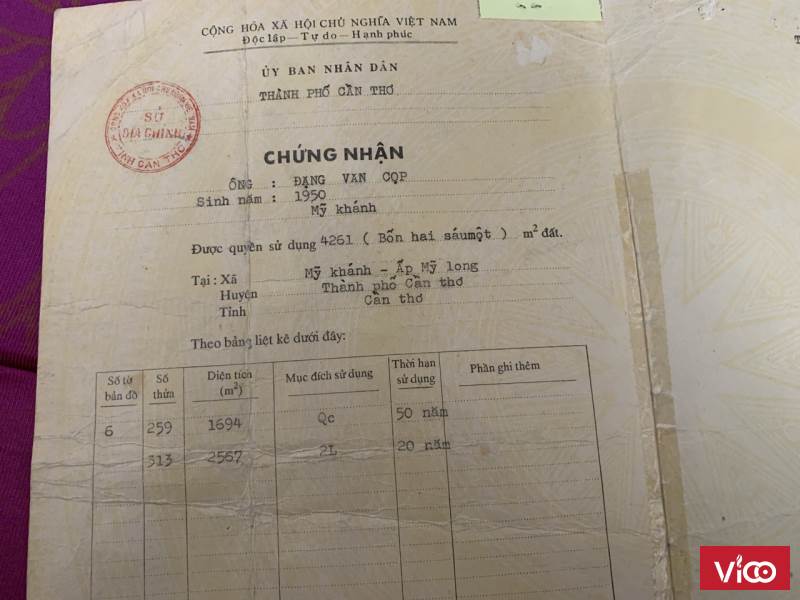 CỘNG HÒA XÃ HỘI CHỦ NGHĨA VIỆT NAM
Độc lập — Tự do — Hạnh phúc
ỦY BAN NHÂN DÂN
THÀNH PHỐ CẦN THƠ
SỞ
ĐỊA CHÍNH
TỈNH CẦN THƠ
CHỨNG NHẬN
ÔNG : ĐẶNG VAN CỌP
Sinh năm : 1950
Mỹ khánh
Được quyền sử dụng 4261 ( Bốn hai sáumột ) m² đất.
Tại : Xã Mỹ khánh - Ấp Mỹ long
Huyện Thành phố Cần thơ
Tỉnh Cần thơ
Theo bảng liệt kê dưới đây:
Số tờ bản đồ Số thửa Diện tích (m²) Mục đích sử dụng Thời hạn sử dụng Phần ghi thêm
6 259 1694 Qc 50 năm
313 2567 2L 20 năm
VIOO